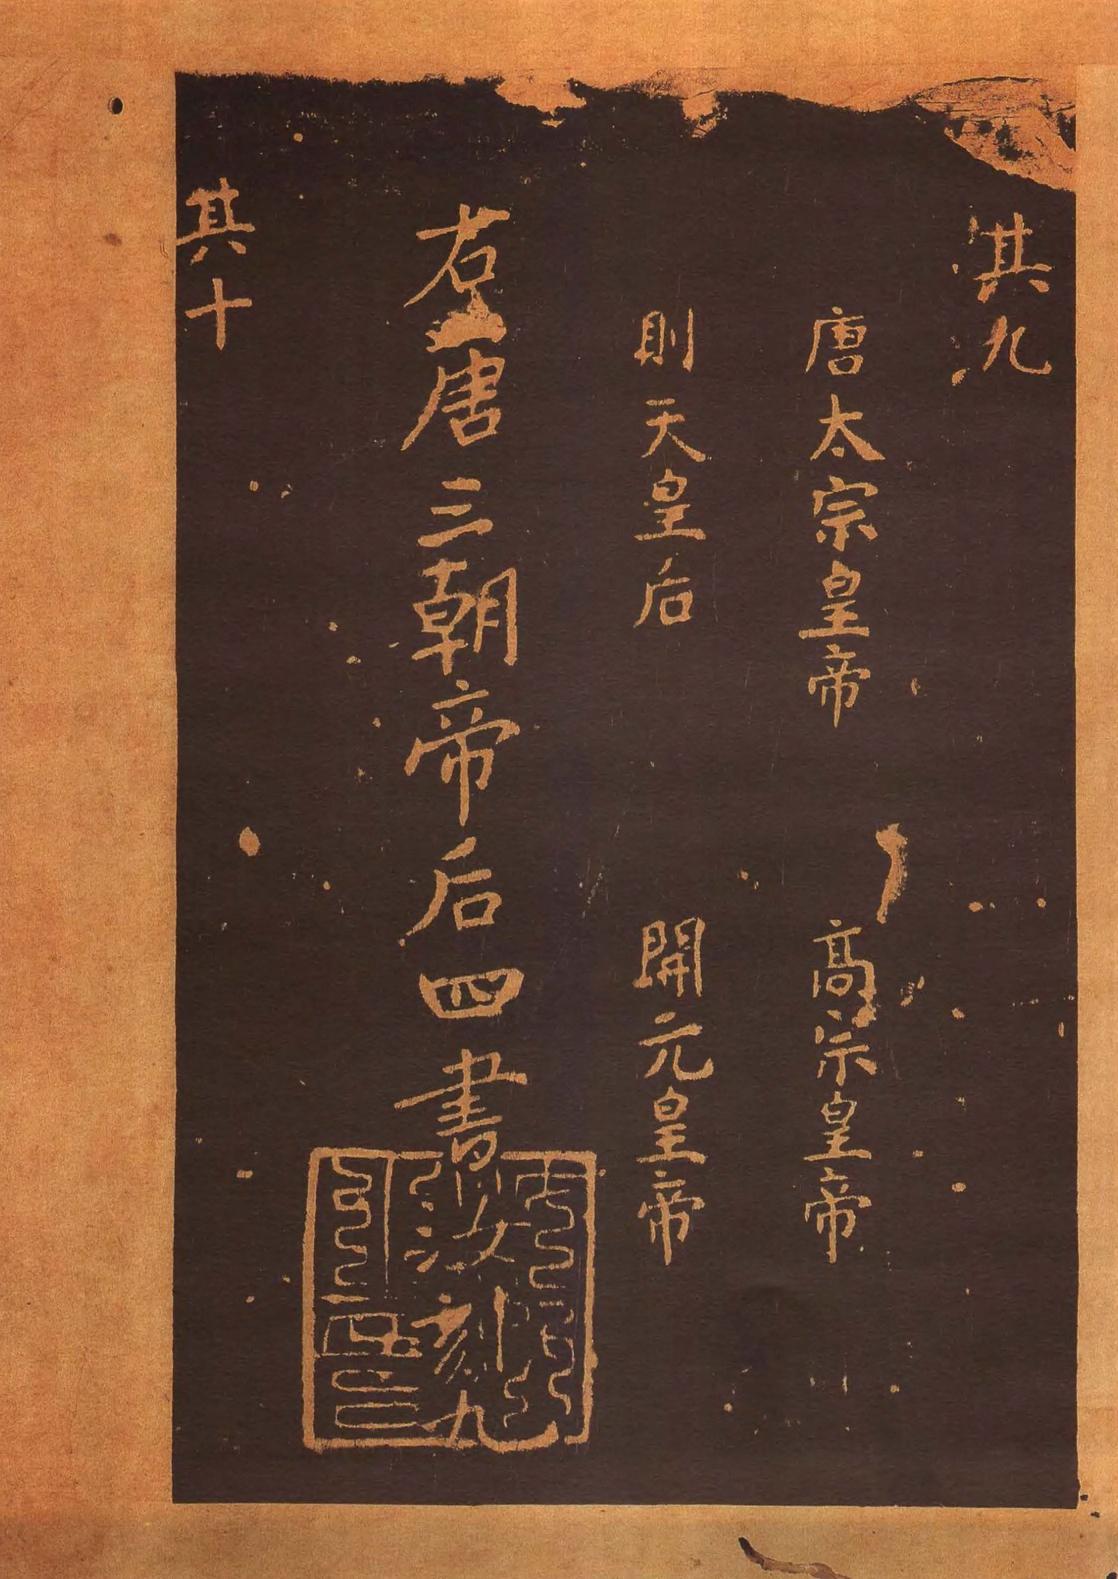 其九
唐太宗皇帝 高宗皇帝
則天皇后 開元皇帝
右唐三朝帝后四書汝刻九
其十